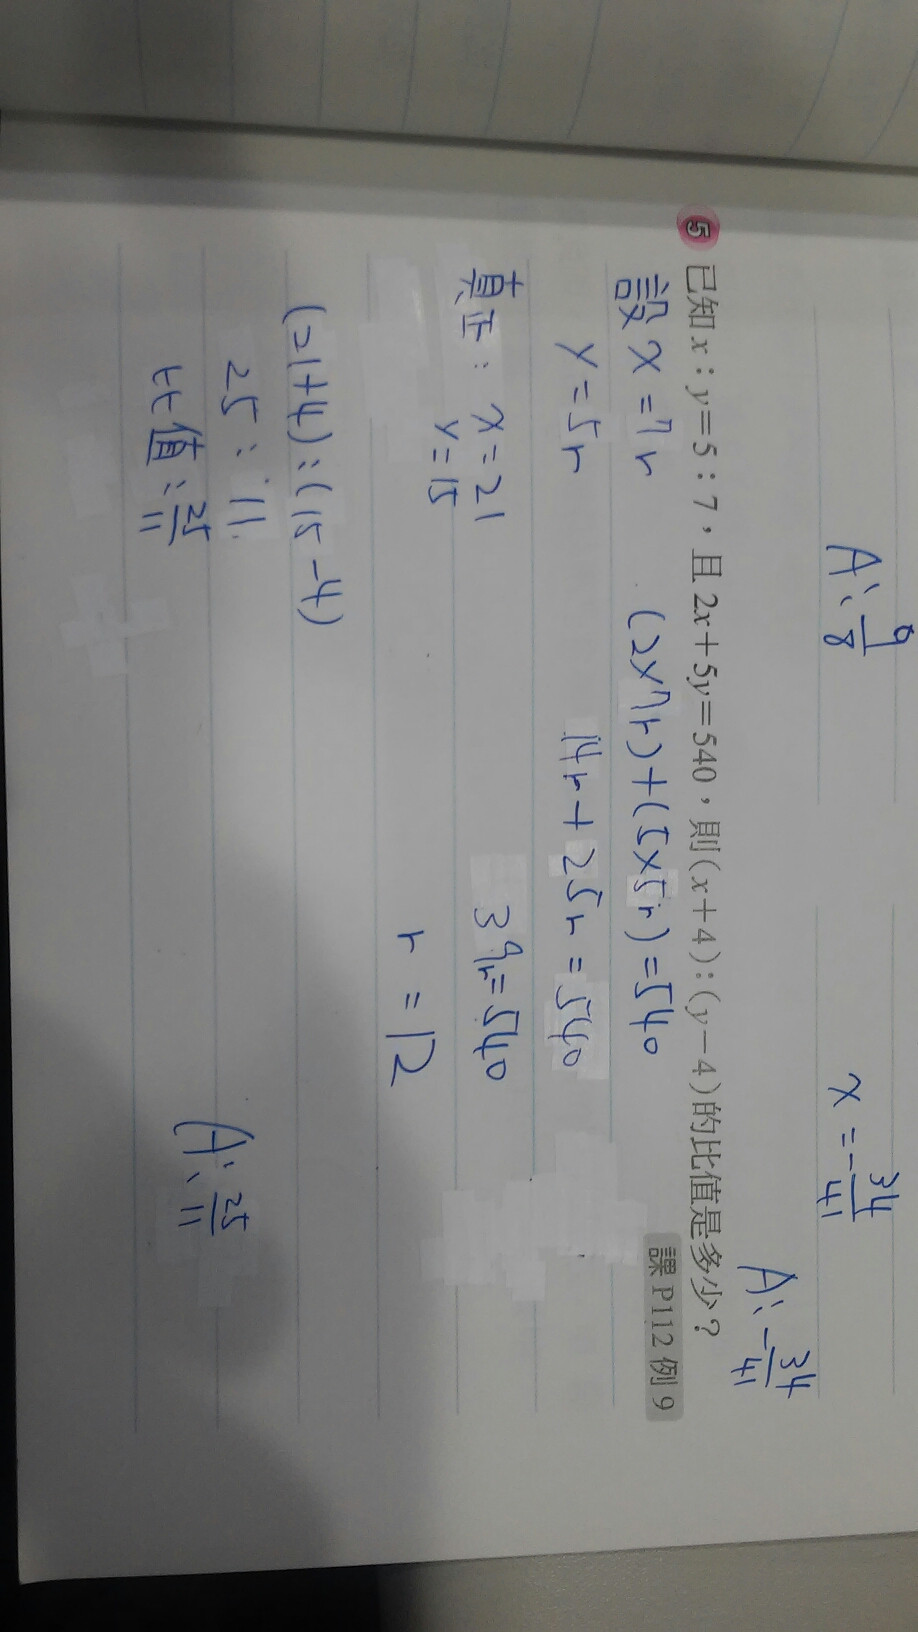 A: 9/8
x = -34/41
A: -34/41
5 已知x:y=5:7,且2x+5y=540,則(x+4):(y-4)的比值是多少?
課P112例9
設 x=7r (2x7r)+(5x5r)=540
y=5r 14r+25r=540
真正: x=21 39r=540
y=15
r=12
(21+4):(15-4)
25:11
比值:25/11
A: 25/11